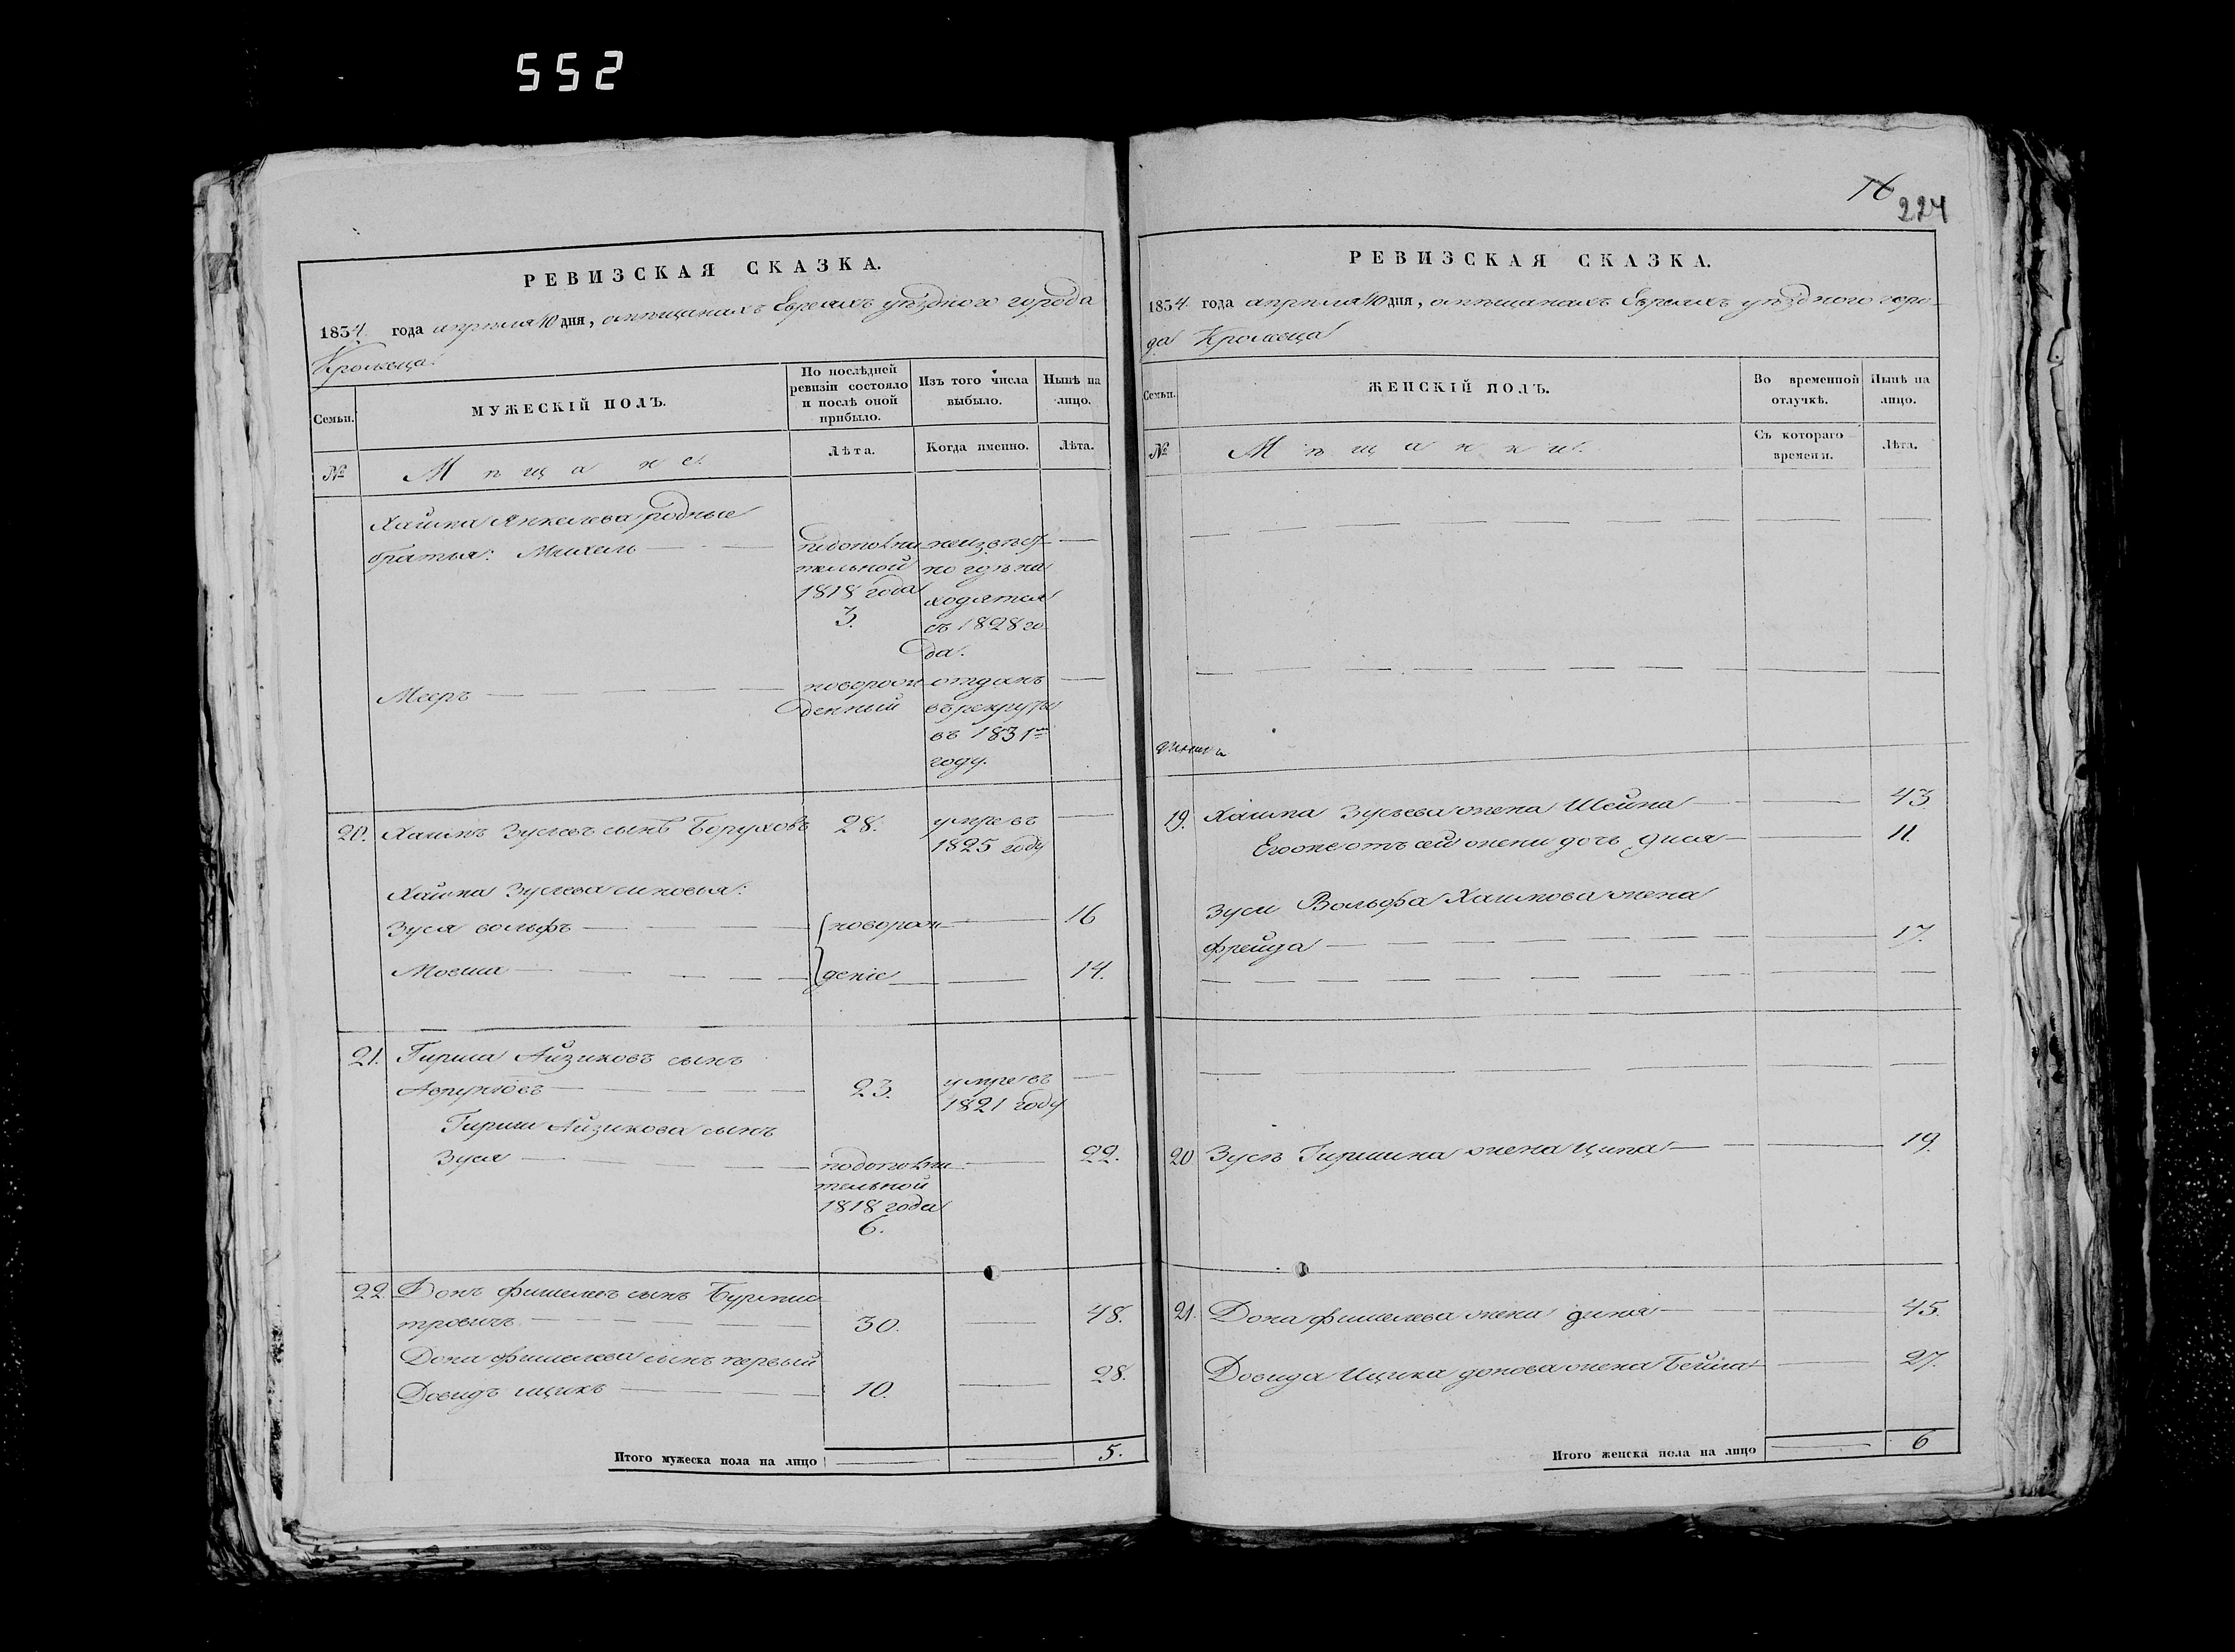 552
РЕВИЗСКАЯ СКАЗКА.
1834. года апреля 10 дня, омещанахъ Евреяхъ уезднаго города
Кролевца.
Семьи.
МУЖЕСКІЙ ПОЛЪ.
По послѣдней
ревизіи состояло
и послѣ оной
прибыло.
Изъ того числа
выбыло.
Нынѣ на
лицо.
№
Мѣщане.
Лѣта.
Когда именно.
Лѣта.
Хаима Янкелева родные
братья: Михель
подополни
тельной
1818 года
3.
неизвест
но где на
ходятся
съ 1828 го
да.
Мееръ
новорож
денный
отданъ
въ рекруты
въ 1831м
году.
20. Хаимъ Зуселевъ сынъ Боруховъ 28. умре въ
1825 году
Хаима Зуселева сыновья:
Зуся вольфъ новорож 16
Мовша денiе 14.
21. Гирша Айзиковъ сынъ
Аврутовъ 23. умре въ
1821 году
Гирши Айзикова сынъ
Зуся 22.
подополни
тельной
1818 года
6.
22. Донъ фишелевъ сынъ Бурмис
тровичъ 30. 48.
Дона фишелева сынъ первый
Довидъ ицикъ 10. 28.
Итого мужеска пола на лицо 5.
16
224
РЕВИЗСКАЯ СКАЗКА.
1834. года апреля 10 дня, омещанахъ Евреяхъ уезднаго горо
да Кролевца
Семьи.
ЖЕНСКІЙ ПОЛЪ.
Во временной
отлучкѣ.
Нынѣ на
лицо.
№
Мѣщанки.
Съ котораго
времени.
Лѣта.
19. Хаима Зусева жена Шейна 43
Егоже отъ сей жены дочь Дися 11.
Зуси Вольфа Хаимова жена
фрейда 17.
20 Зусь Гиршина жена Ципа 19.
21. Дона фишелева жена диня 45.
Довида Ицика донова жена Бейла 27.
Итого женска пола на лицо 6